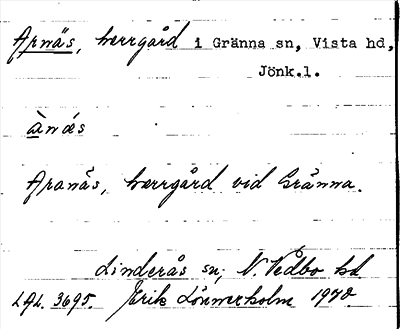 Arnäs, herrgård i Gränna sn, Vista hd,
Jönk.l.
ànäs
Aranäs, herrgård vid Gränna.
Linderås sn, N. Vedbo hd
LAL. 3695. Erik Lönnerholm 1970